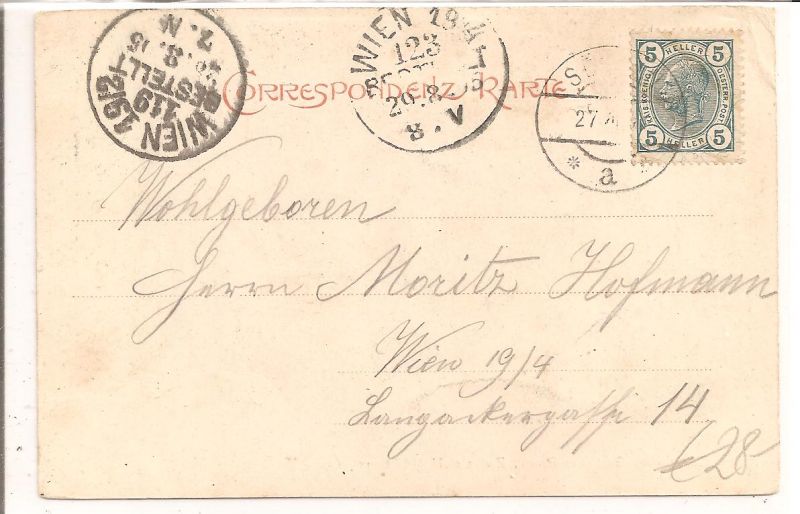 WIEN 19/2
119
BESTELLT
8. 5
7. N
WIEN 19/1
123
29. 8. 5
8. V
CORRESPONDENZ-KARTE
27
* a
5 HELLER 5
KAIS. KOENIGL. OESTERR. POST.
5 HELLER 5
Wohlgeboren
Herrn Moritz Hofmann
Wien 19/4
Langackergasse 14
28